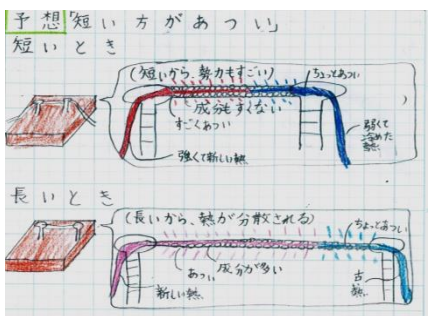 予想「短い方があつい」
短いとき
(短いから、勢力もすごい)
ちょっとあつい
成分もすくない
すごくあつい
強くて新しい熱
弱くて
熱
長いとき
(長いから、熱が分散される)
ちょっとあつい
あつい
成分が多い
新しい熱
古
熱